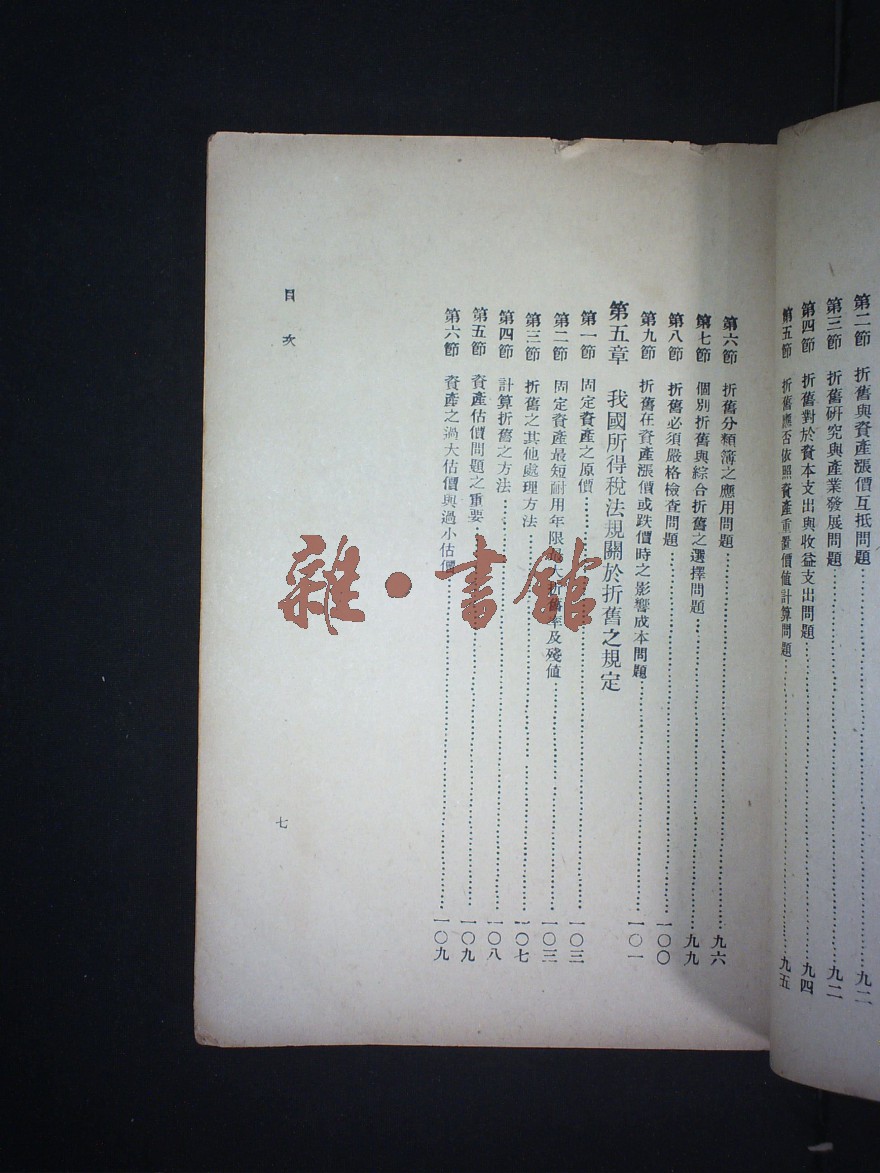 第二節　折舊與資產漲價互抵問題……九二
第三節　折舊研究與產業發展問題……九二
第四節　折舊對於資本支出與收益支出問題……九四
第五節　折舊應否依照資產重置價值計算問題……九五
第六節　折舊分類簿之應用問題……九六
第七節　個別折舊與綜合折舊之選擇問題……九九
第八節　折舊必須嚴格檢查問題……一〇〇
第九節　折舊在資產漲價或跌價時之影響成本問題……一〇一
第五章　我國所得稅法規關於折舊之規定
第一節　固定資產之原價……一〇三
第二節　固定資產最短耐用年限最大折舊率及殘值……一〇三
第三節　折舊之其他處理方法……一〇七
第四節　計算折舊之方法……一〇八
第五節　資產估價問題之重要……一〇九
第六節　資產之過大估價與過小估價……一〇九
目次
七
雜·書館